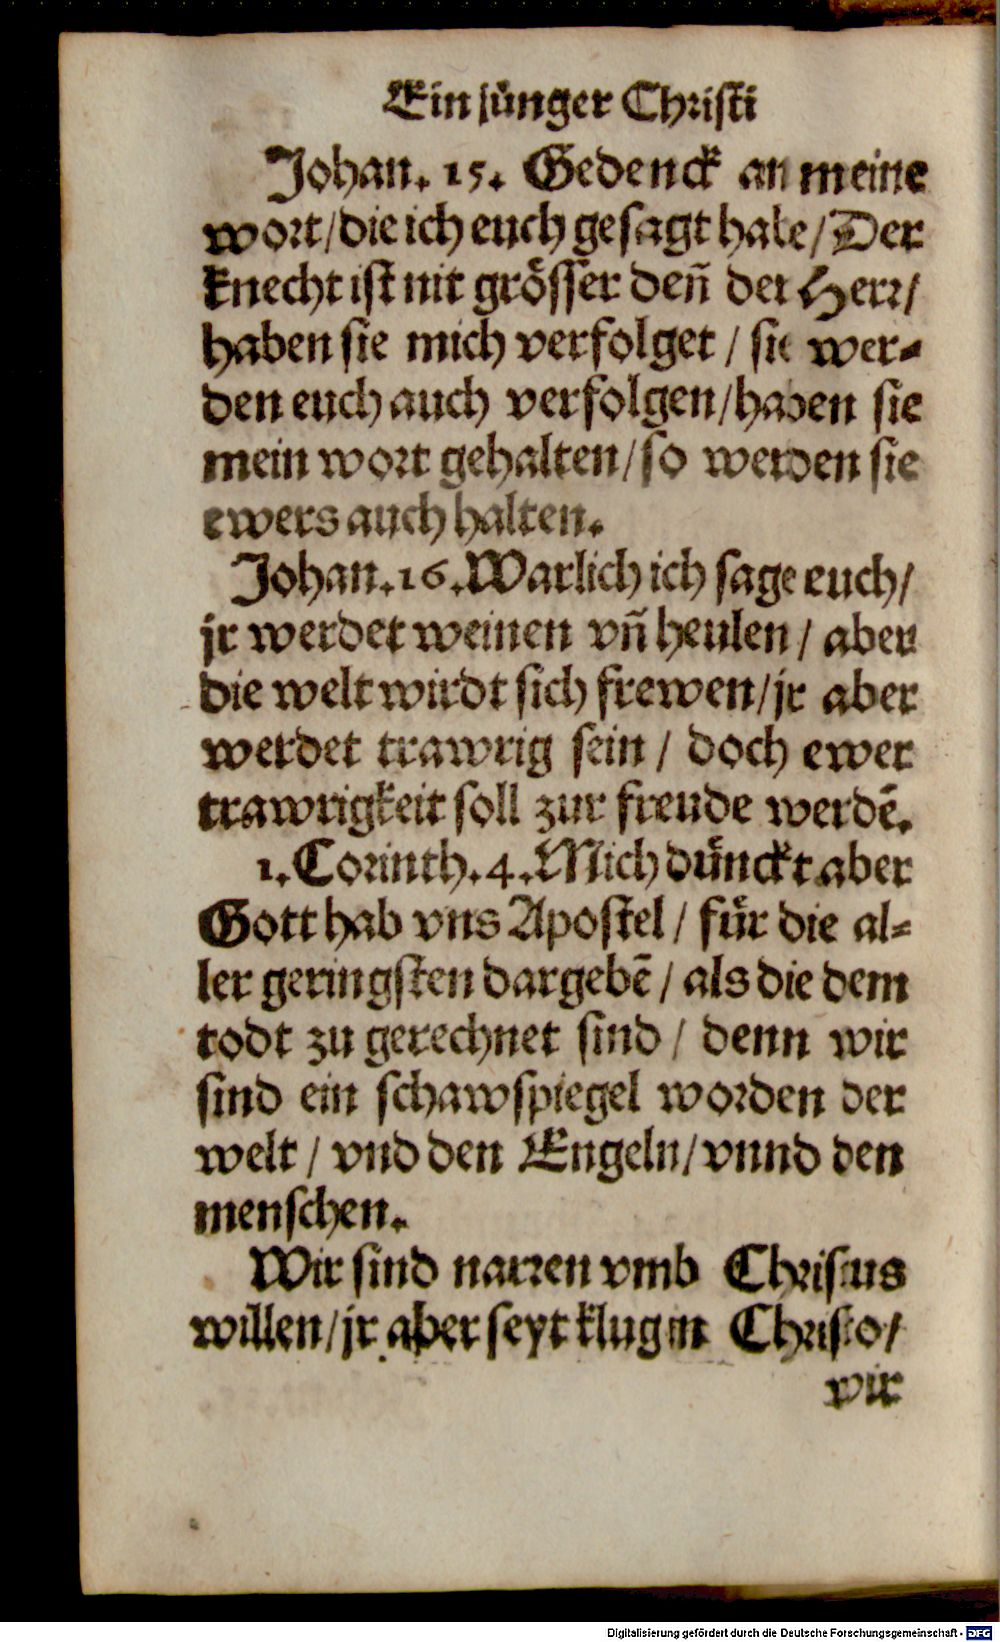 Ein jünger Christi
Johan. 15. Gedenck an meine
wort/die ich euch gesagt habe/Der
knecht ist nit grösser deñ der Herr/
haben sie mich verfolget / sie wer-
den euch auch verfolgen/haben sie
mein wort gehalten/so werden sie
ewers auch halten.
Johan.16.Warlich ich sage euch/
jr werdet weinen vñ heulen / aber
die welt wirdt sich frewen/jr aber
werdet trawrig sein / doch ewer
trawrigkeit soll zur freude werdē.
1.Corinth.4.Mich dünckt aber
Gott hab vns Apostel / für die al-
ler geringsten dargebē / als die dem
todt zu gerechnet sind / denn wir
sind ein schawspiegel worden der
welt / vnd den Engeln/vnnd den
menschen.
Wir sind narren vmb Christus
willen/jr aber seyt klug in Christo/
wir
Digitalisierung gefördert durch die Deutsche Forschungsgemeinschaft - DFG